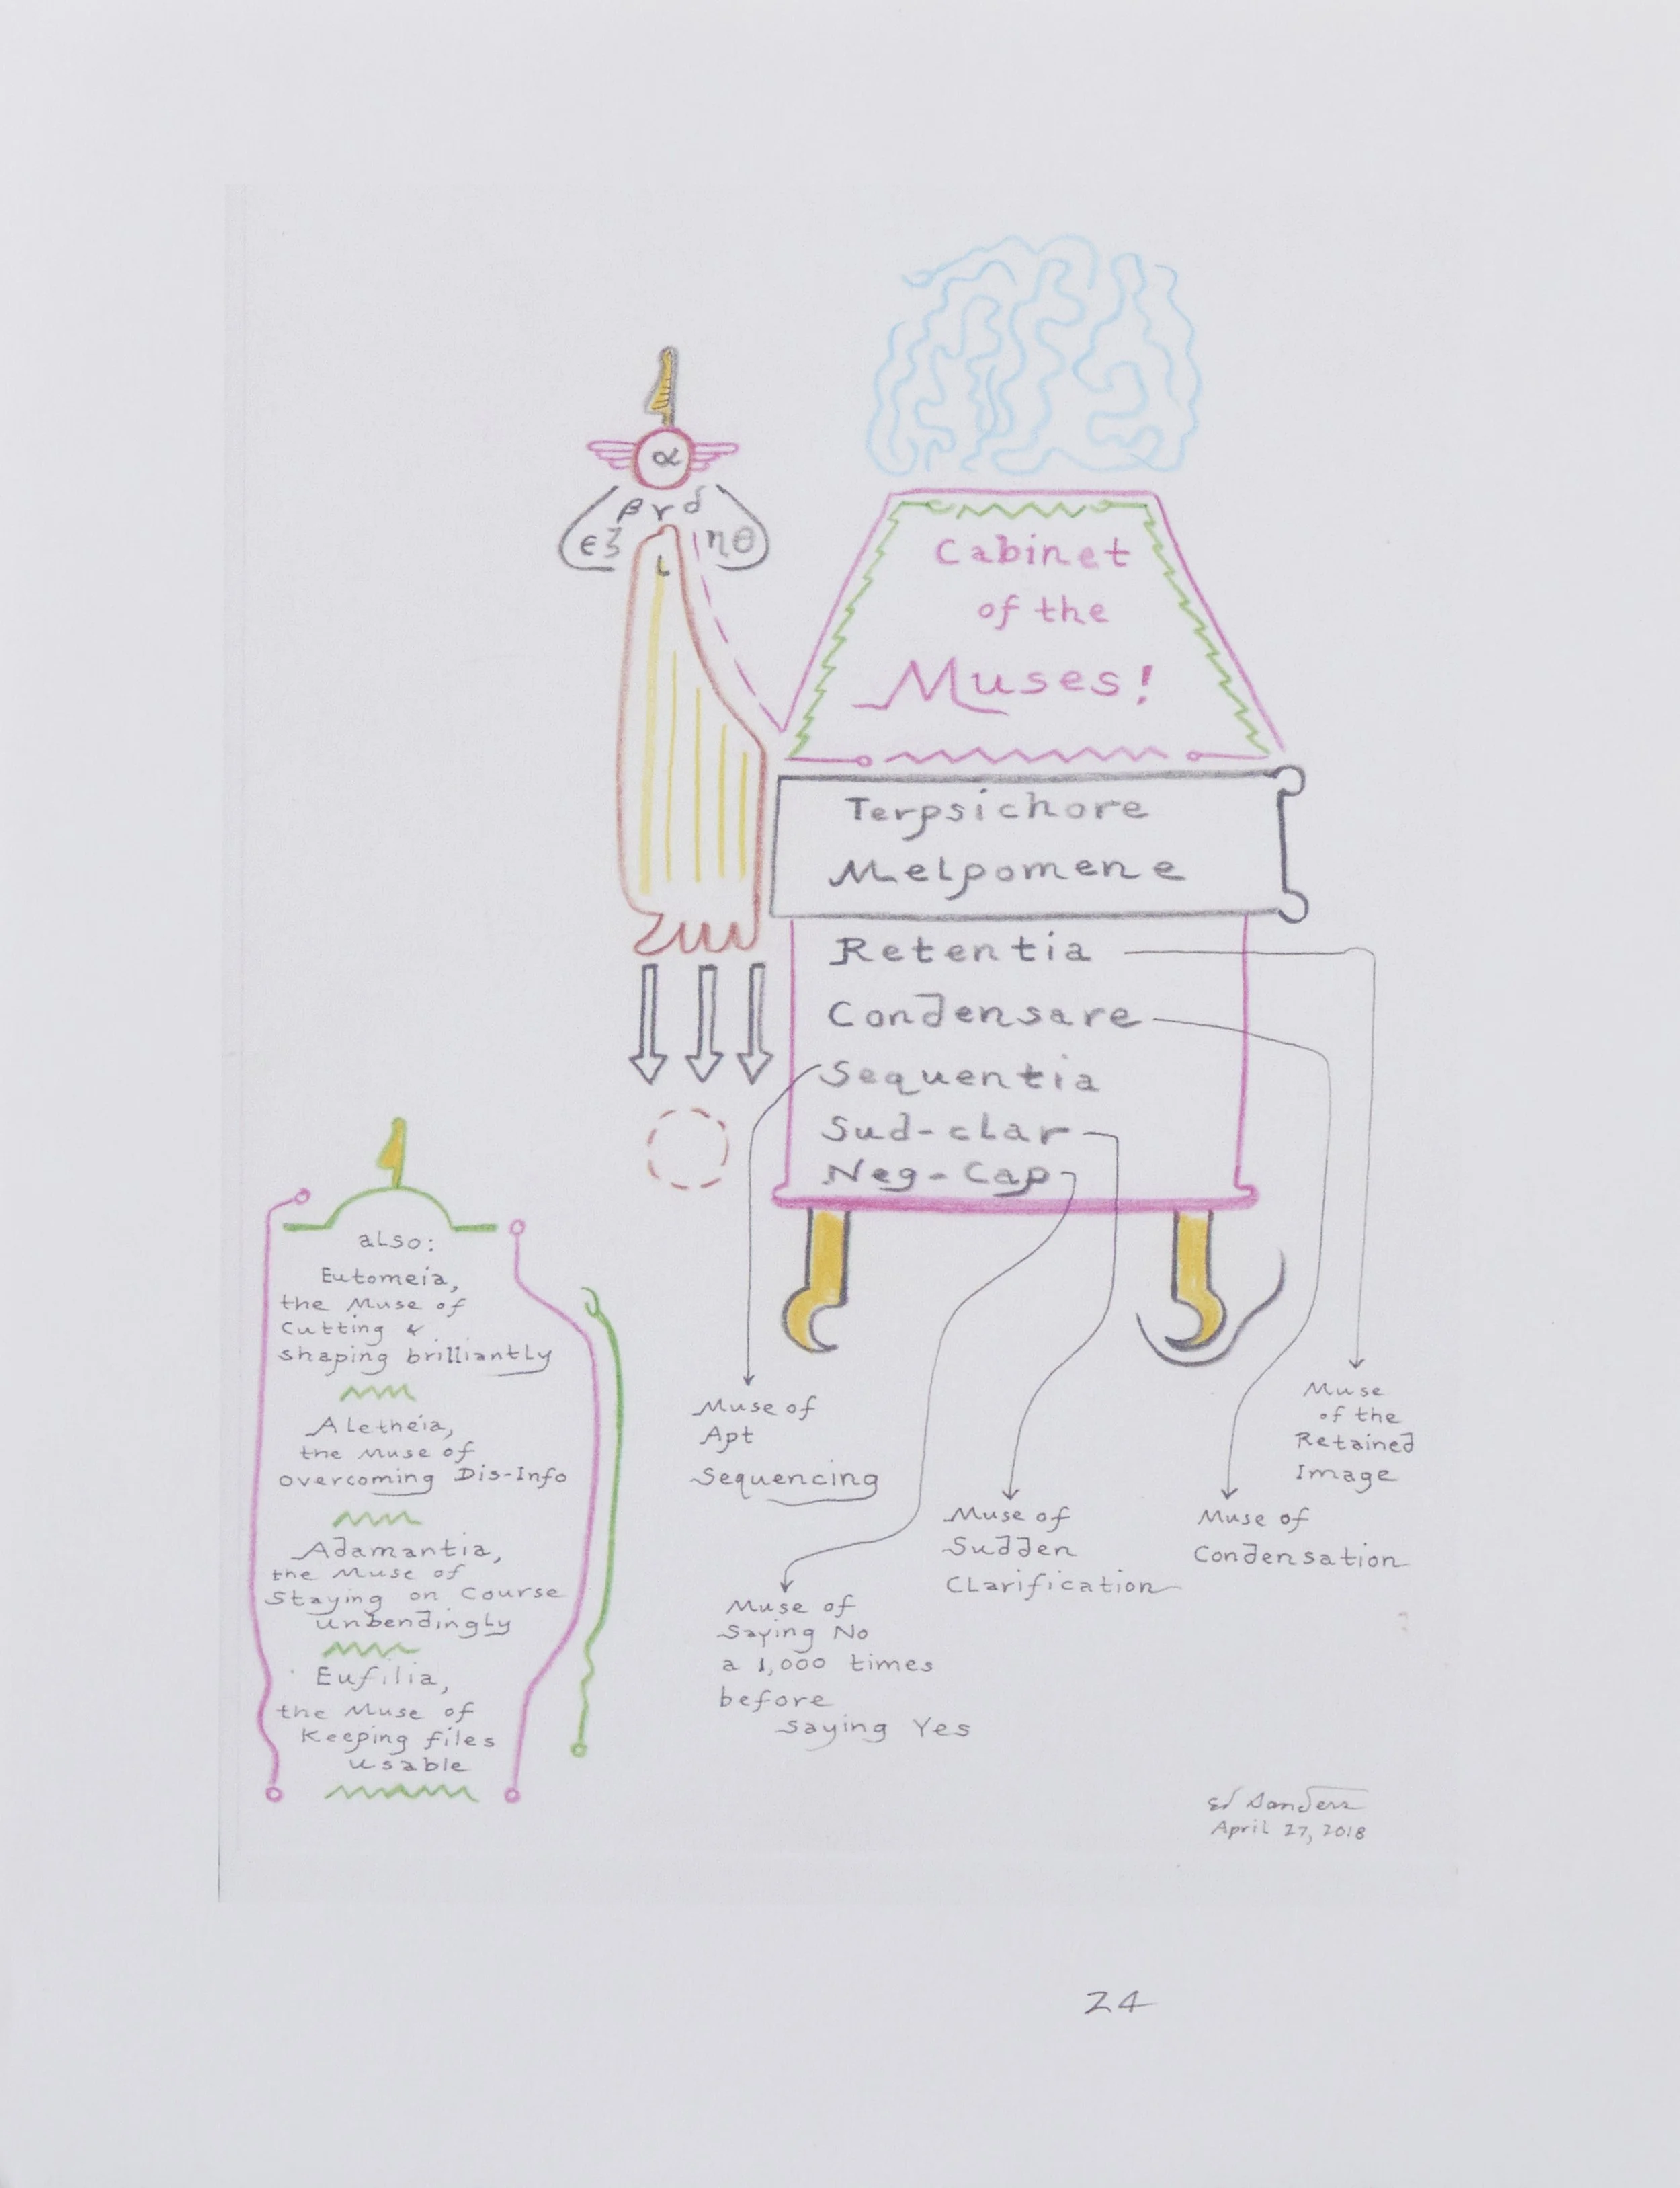 α
β γ δ
ε ζ
η θ
ι
Cabinet
of the
Muses!
Terpsichore
Melpomene
Retentia
Condensare
Sequentia
Sud-clar
Neg-Cap
also:
Eutomeia,
the Muse of
Cutting &
shaping brilliantly
Aletheia,
the Muse of
overcoming Dis-Info
Adamantia,
the Muse of
Staying on Course
unbendingly
Eufilia,
the Muse of
Keeping files
usable
Muse of
Apt
Sequencing
Muse of
Saying No
a 1,000 times
before
saying Yes
Muse of
Sudden
Clarification
Muse of
Condensation
Muse
of the
Retained
Image
Ed Sanders
April 27, 2018
24